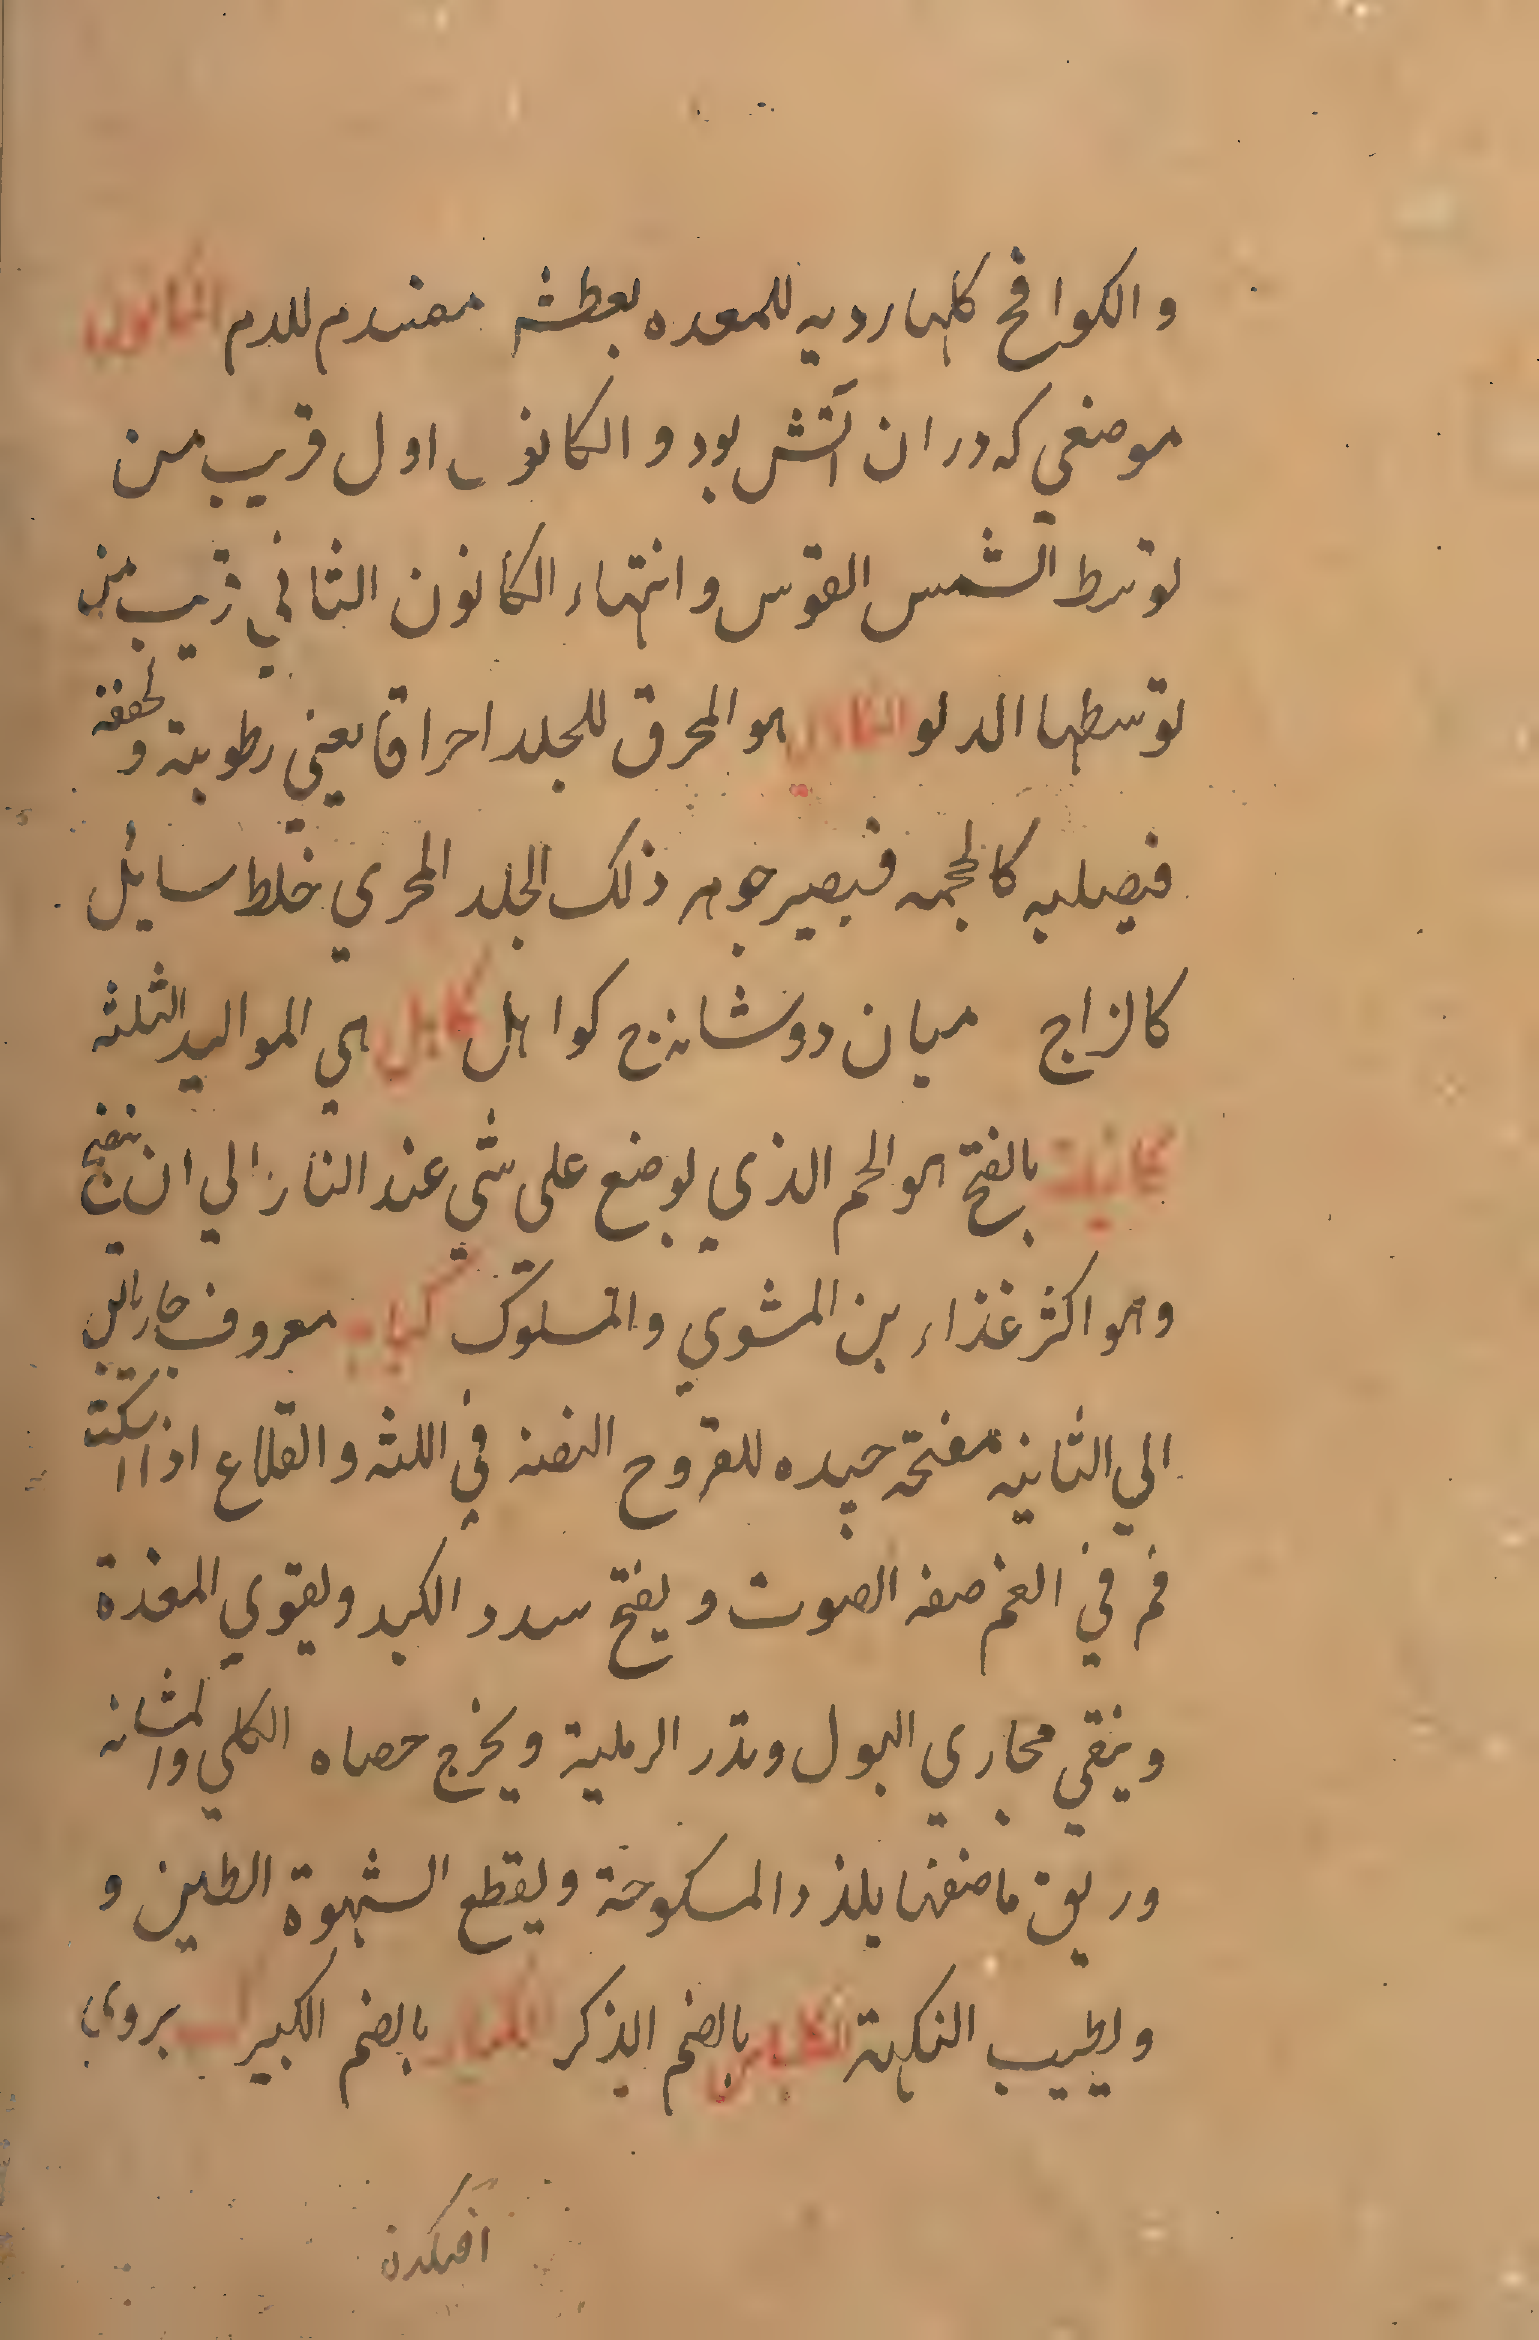 والكوامخ كلها رديه للمعده يعطش مفسد للدم الكانون
موضعي كه دران آتش بود والكانون اول قريب من
توسط الشمس القوس وانتهاء الكانون الثاني قريب من
توسطها الدلو هو المحرق للجلد احراقا يعني رطوبته و
فيصليه كالحجمه فيصير جوهر ذلك الجلد المحري خلط سايل
كالزاج ميان دوشانه ج كواهل كابل هي المواليد الثلثه
بالفتح هو الحم الذي يوضع على شي عند النار الي ان ينضج
وهو اكثر غذاء بن المشوي والمسلوك كبابه معروف حار يابس
الي الثانيه مفتحه جيده للقروح العفنه في اللثه والقلاع اذا امسكت
فم في الغم صفه الصوت ويفتح سدد الكبد ويقوي المعدة
وينقي مجاري البول وتدر الرملية ويخرج حصاه الكلي والمثانه
وريق ماضغها يلذ دالمسكوحة ويقطع الشهوة الطين و
ويطيب النكهة الكباس بالضم الذكر الكبار بالضم الكبير اب بروي
افكندن